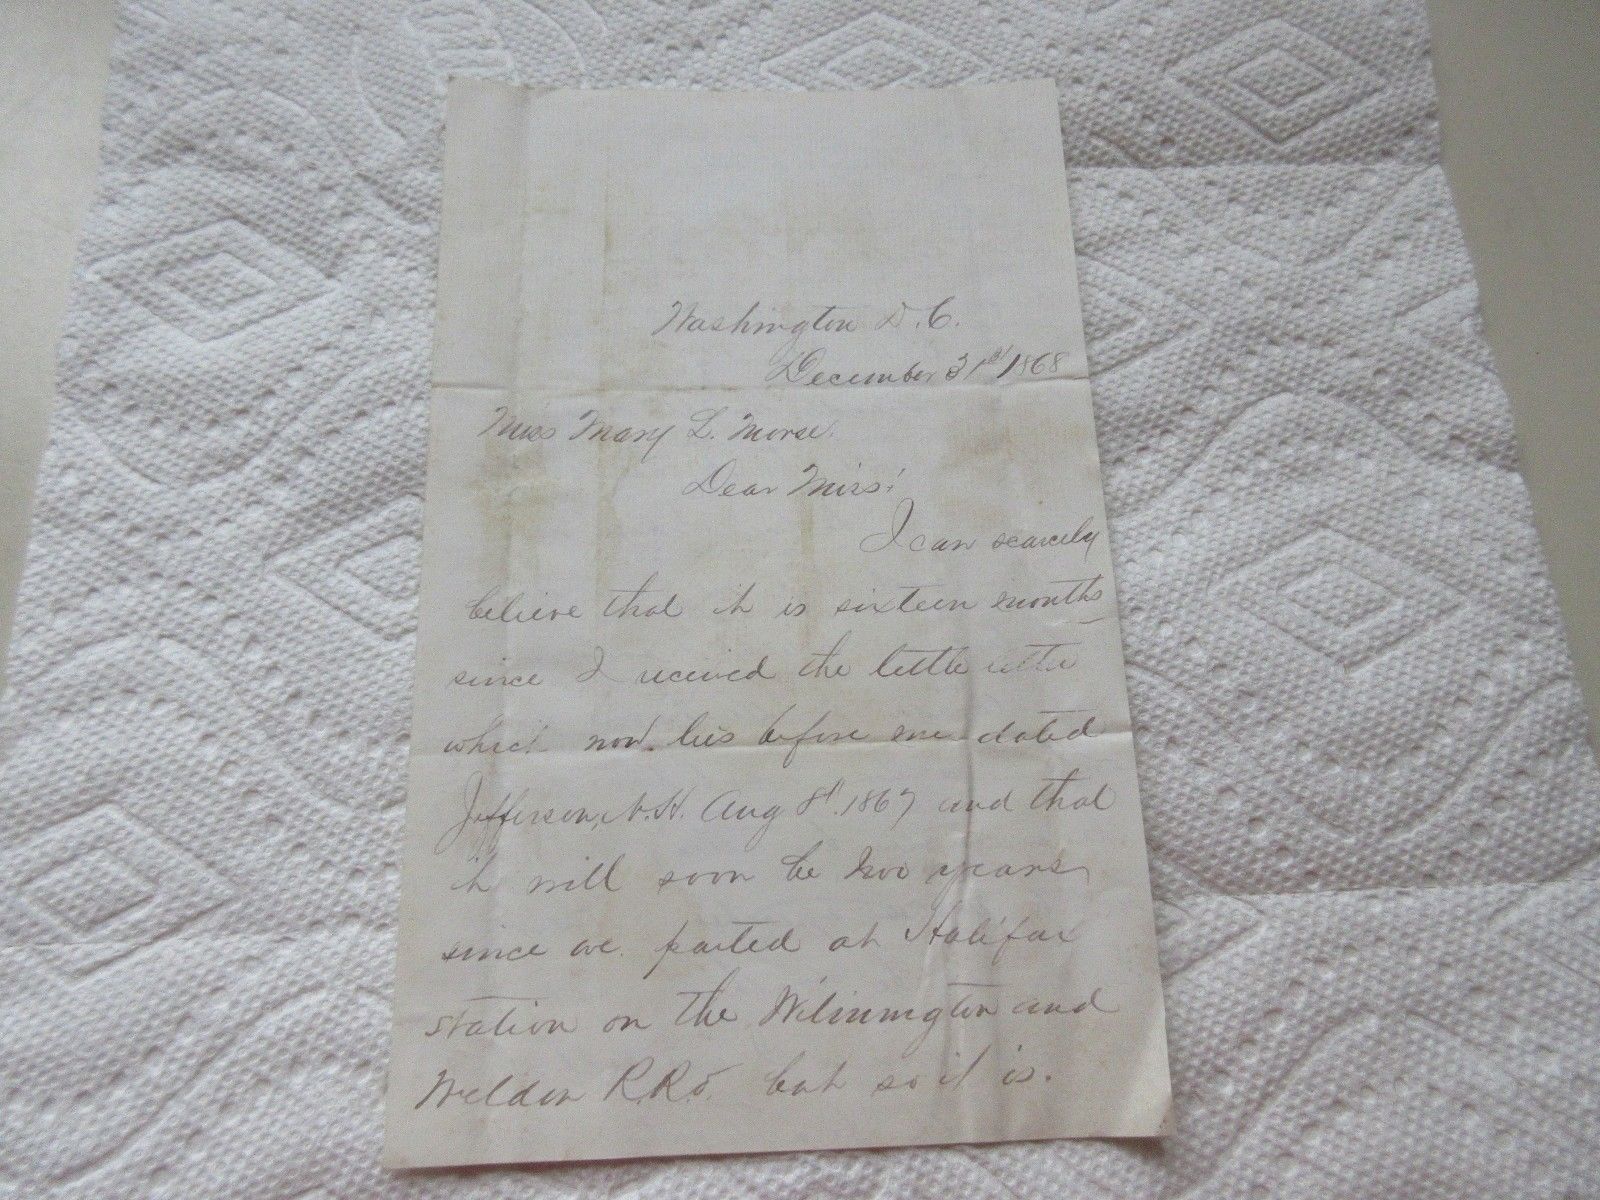 Washington D.C.
December 31st 1868
Miss Mary L. Morse.
Dear Miss!
I can scarcely
believe that it is sixteen months
since I received the little letter
which now lies before me dated
Jefferson, N.H. Aug 8th 1867 and that
it will soon be two years
since we parted at Halifax
station on the Wilmington and
Weldon R.R. but so it is.